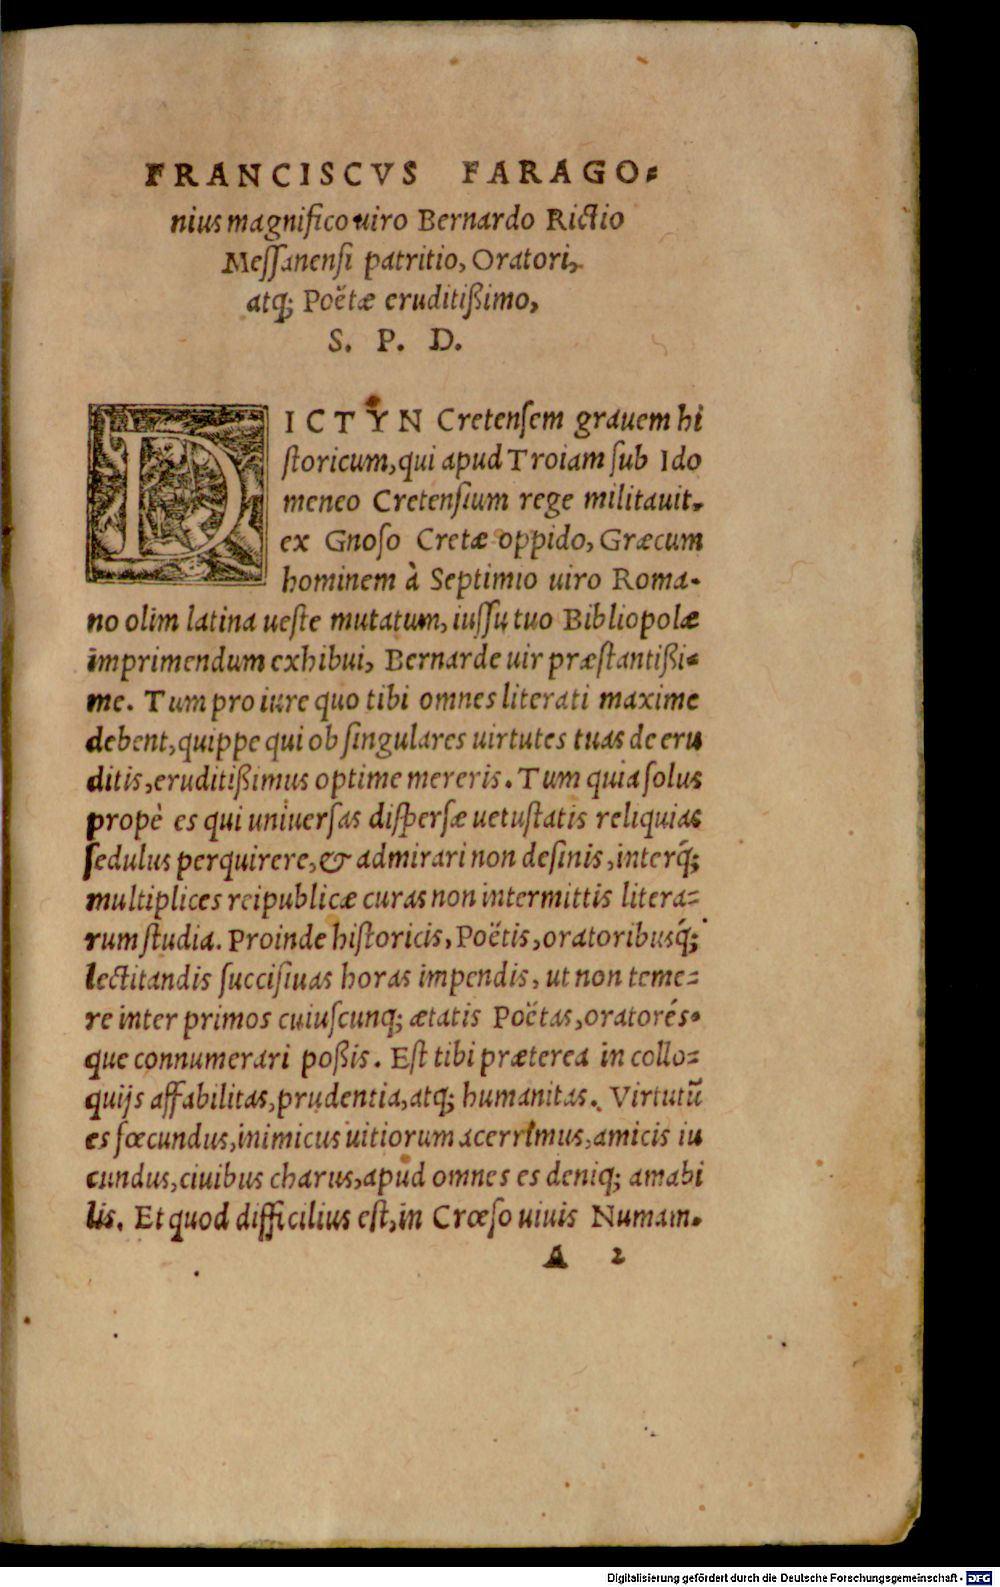 FRANCISCVS FARAGO-
nius magnifico uiro Bernardo Rictio
Meſſanenſi patritio, Oratori,
atq; Poëtæ eruditißimo,
S. P. D.
DICTYN Cretenſem grauem hi
ſtoricum, qui apud Troiam ſub Ido
meneo Cretenſium rege militauit,
ex Gnoſo Cretæ oppido, Græcum
hominem à Septimio uiro Roma-
no olim latina ueſte mutatum, iuſſu tuo Bibliopolæ
imprimendum exhibui, Bernarde uir præſtantißi-
me. Tum pro iure quo tibi omnes literati maxime
debent, quippe qui ob ſingulares uirtutes tuas de eru
ditis, eruditißimus optime mereris. Tum quia ſolus
propè es qui uniuerſas diſperſæ uetuſtatis reliquias
ſedulus perquirere, & admirari non deſinis, interq́;
multiplices reipublicæ curas non intermittis litera-
rum ſtudia. Proinde hiſtoricis, Poëtis, oratoribusq́;
lectitandis ſucciſiuas horas impendis, ut non teme-
re inter primos cuiuſcunq; ætatis Poëtas, oratorés-
que connumerari poßis. Eſt tibi præterea in collo-
quijs affabilitas, prudentia, atq; humanitas. Virtutũ
es fœcundus, inimicus uitiorum acerrimus, amicis iu
cundus, ciuibus charus, apud omnes es deniq; amabi
lis. Et quod difficilius eſt, in Crœſo uiuis Numam.
A 2
Digitalisierung gefördert durch die Deutsche Forschungsgemeinschaft - DFG